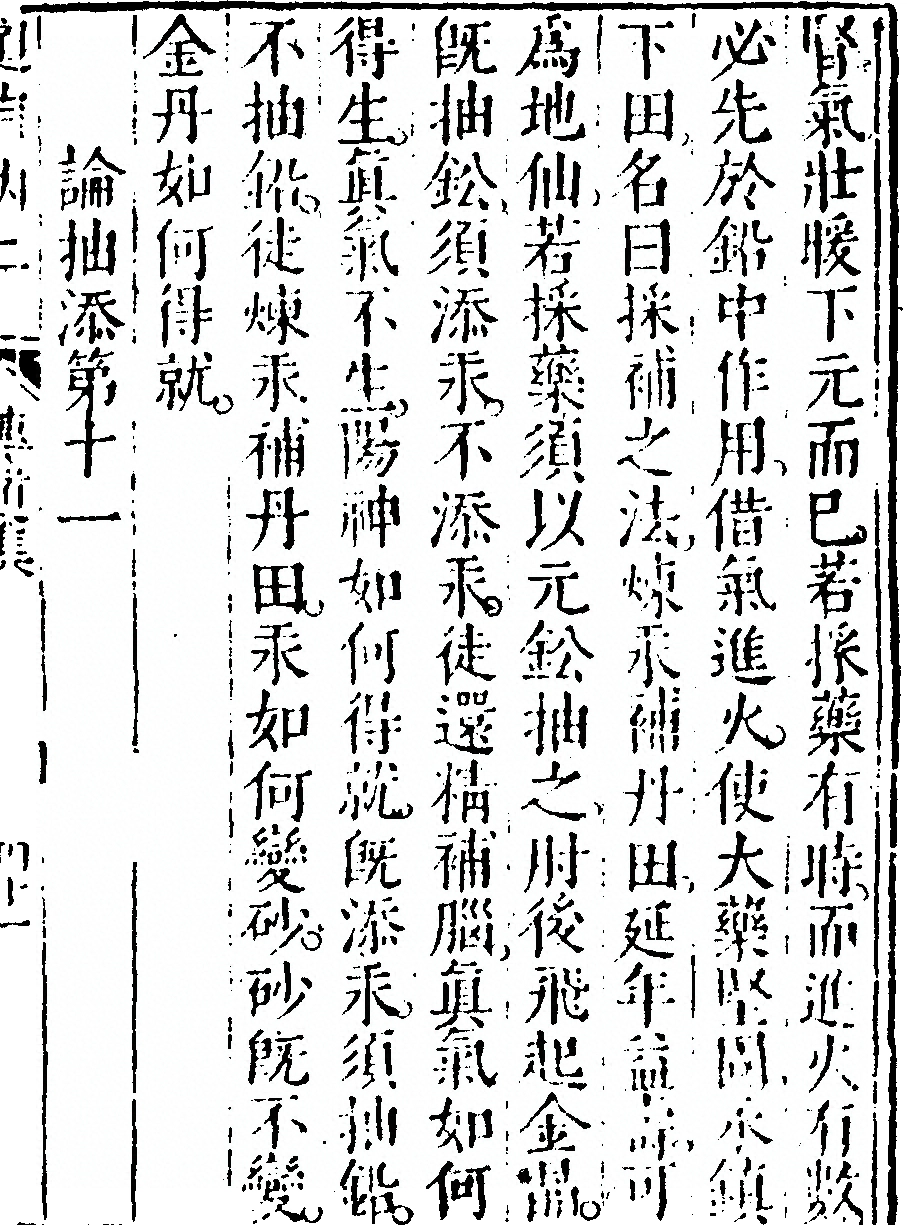 腎氣壯暖下元而已若採藥有時而進火有數
必先於鉛中作用借氣進火使大藥堅固永鎮
下田名曰採補之法煉汞補丹田延年益壽可
爲地仙若採藥須以元鈆抽之肘後飛起金晶
既抽鈆須添汞不添汞徒還精補腦眞氣如何
得生眞氣不生陽神如何得就既添汞須抽鉛
不抽鉛徒煉汞補丹田汞如何變砂砂既不變
金丹如何得就
論抽添第十一